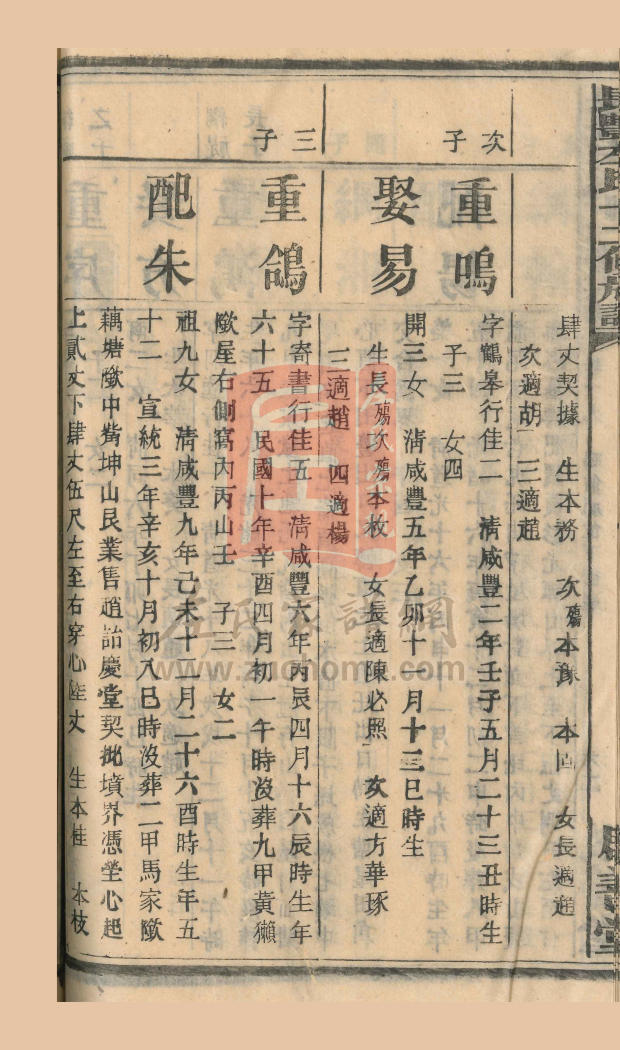 肆丈契據　生本務　次殤　本豫　本固　女長適趙
次適胡　三適趙
次子
重鳴
字鶴皋行佳二　清咸豐二年壬子五月二十三丑時生
子三　女四
娶易
開三女　清咸豐五年乙卯十一月十三巳時生
生長殤次殤本枚　女長適陳必照　次適方華琢
三適趙　四適楊
三子
重鴿
字寄書行佳五　清咸豐六年丙辰四月十六辰時生年
六十五　民國十年辛酉四月初一午時沒葬九甲黃獺
屋右側窩內丙山壬　子三　女二
配朱
祖九女　清咸豐九年己未十一月二十六酉時生年五
十二　宣統三年辛亥十月初八巳時沒葬二甲馬家
藕塘中嘴坤山艮業售趙詒慶堂契批墳界憑塋心起
上貳丈下肆丈伍尺左至右穿心陸丈　生本桂　本枝
www.zuchome.com